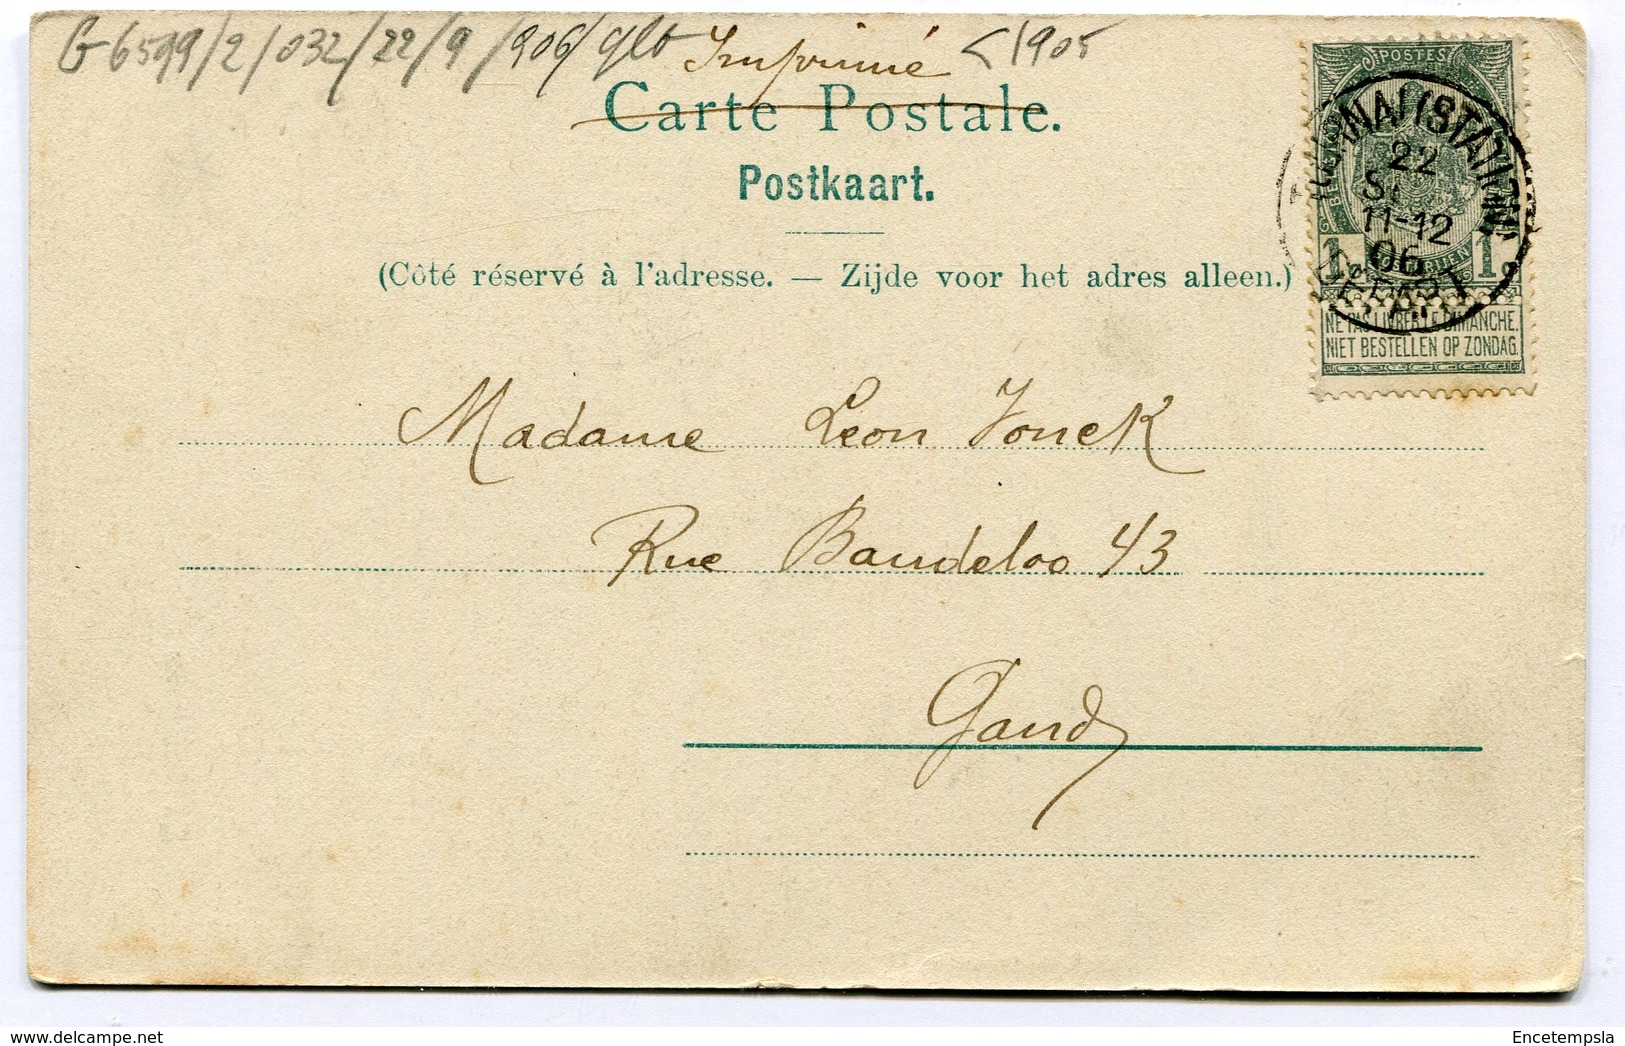 G-6599/2/032/22/9/906/glt Imprimé <1905
Carte Postale.
Postkaart.
(Côté réservé à l'adresse. — Zijde voor het adres alleen.)
POSTES
TOURNAI (STATION)
22
11-12
06
DEPART
1 1
NE PAS LIVRER LE DIMANCHE.
NIET BESTELLEN OP ZONDAG.
Madame Leon Jonck
Rue Baudeloo 43
Gand
Encetempsla